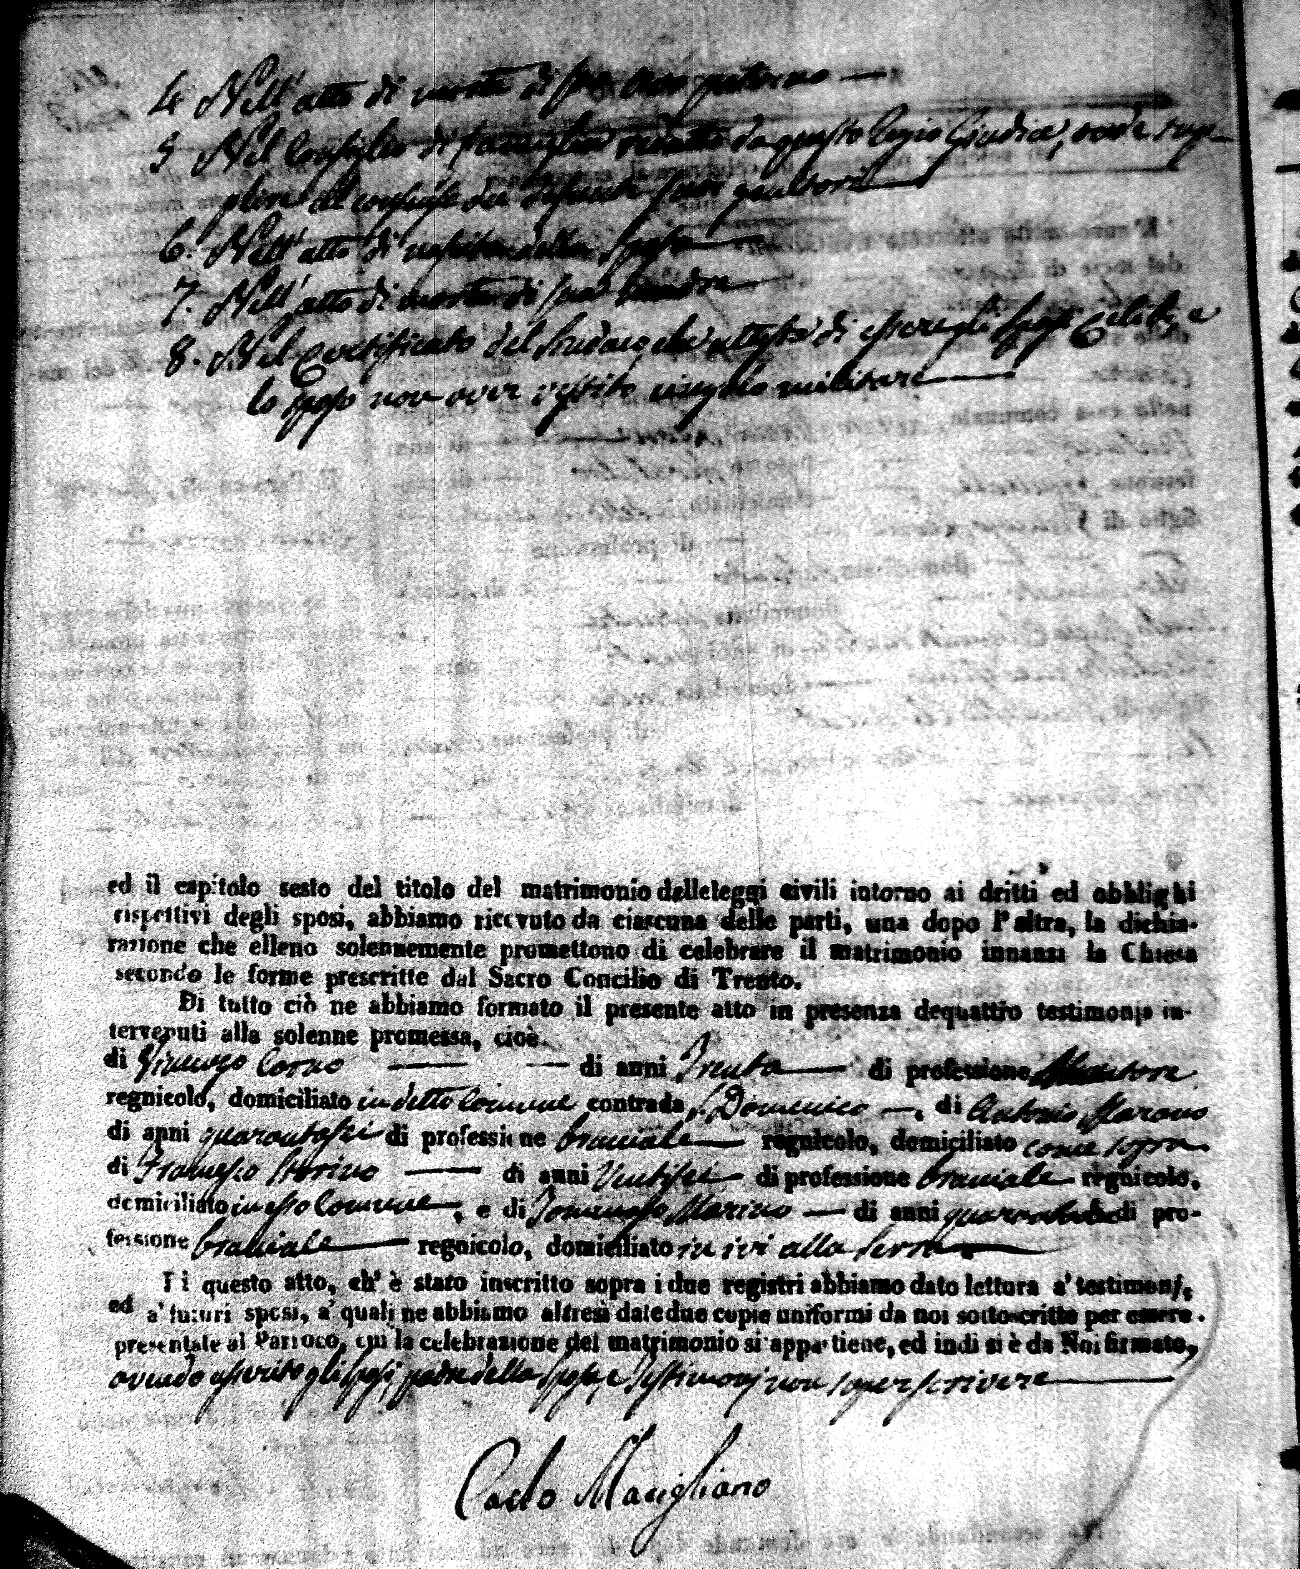 4. Nell'atto di morte di suo avo paterno —
5. Nel Consiglio di famiglia redatto da questo Regio Giudice, ond'è sup-
plire al consenso dei defunti suoi genitori —
6. Nell'atto di nascita della Sposa —
7. Nell'atto di morte di sua madre —
8. Nel Certificato del Sindaco che attesta di essere gli Sposi Celibi, e
lo sposo non aver vestito cingolo militare —
ed il capitolo sesto del titolo del matrimonio delleleggi civili intorno ai dritti ed obblighi
rispettivi degli sposi, abbiamo ricevuto da ciascuna delle parti, una dopo l'altra, la dichia-
razione che elleno solennemente promettono di celebrare il matrimonio innanzi la Chiesa
secondo le forme prescritte dal Sacro Concilio di Trento.
Di tutto ciò ne abbiamo formato il presente atto in presenza dequattro testimonj in-
tervenuti alla solenne promessa, cioè
di Vincenzo Corno — — di anni Trenta — di professione
regnicolo, domiciliato in detto Comune contrada S. Domenico —, di Antonio Marano
di anni quarantasei di professione bracciale — regnicolo, domiciliato come sopra
di Francesco — di anni Ventisei — di professione bracciale regnicolo,
domiciliato in esso Comune —, e di Tommaso Marino — di anni di pro-
fessione bracciale — regnicolo, domiciliato in ivi alla Serra —
Di questo atto, ch'è stato inscritto sopra i due registri abbiamo dato lettura a' testimonj,
ed a' futuri sposi, a' quali ne abbiamo altresì date due copie uniformi da noi sottoscritte per essere
presentate al Parroco, cui la celebrazione del matrimonio si appartiene, ed indi si è da Noi firmato,
avendo asserito gli sposi, padre della sposa, e Testimonj non saper scrivere —
Carlo Marigliano